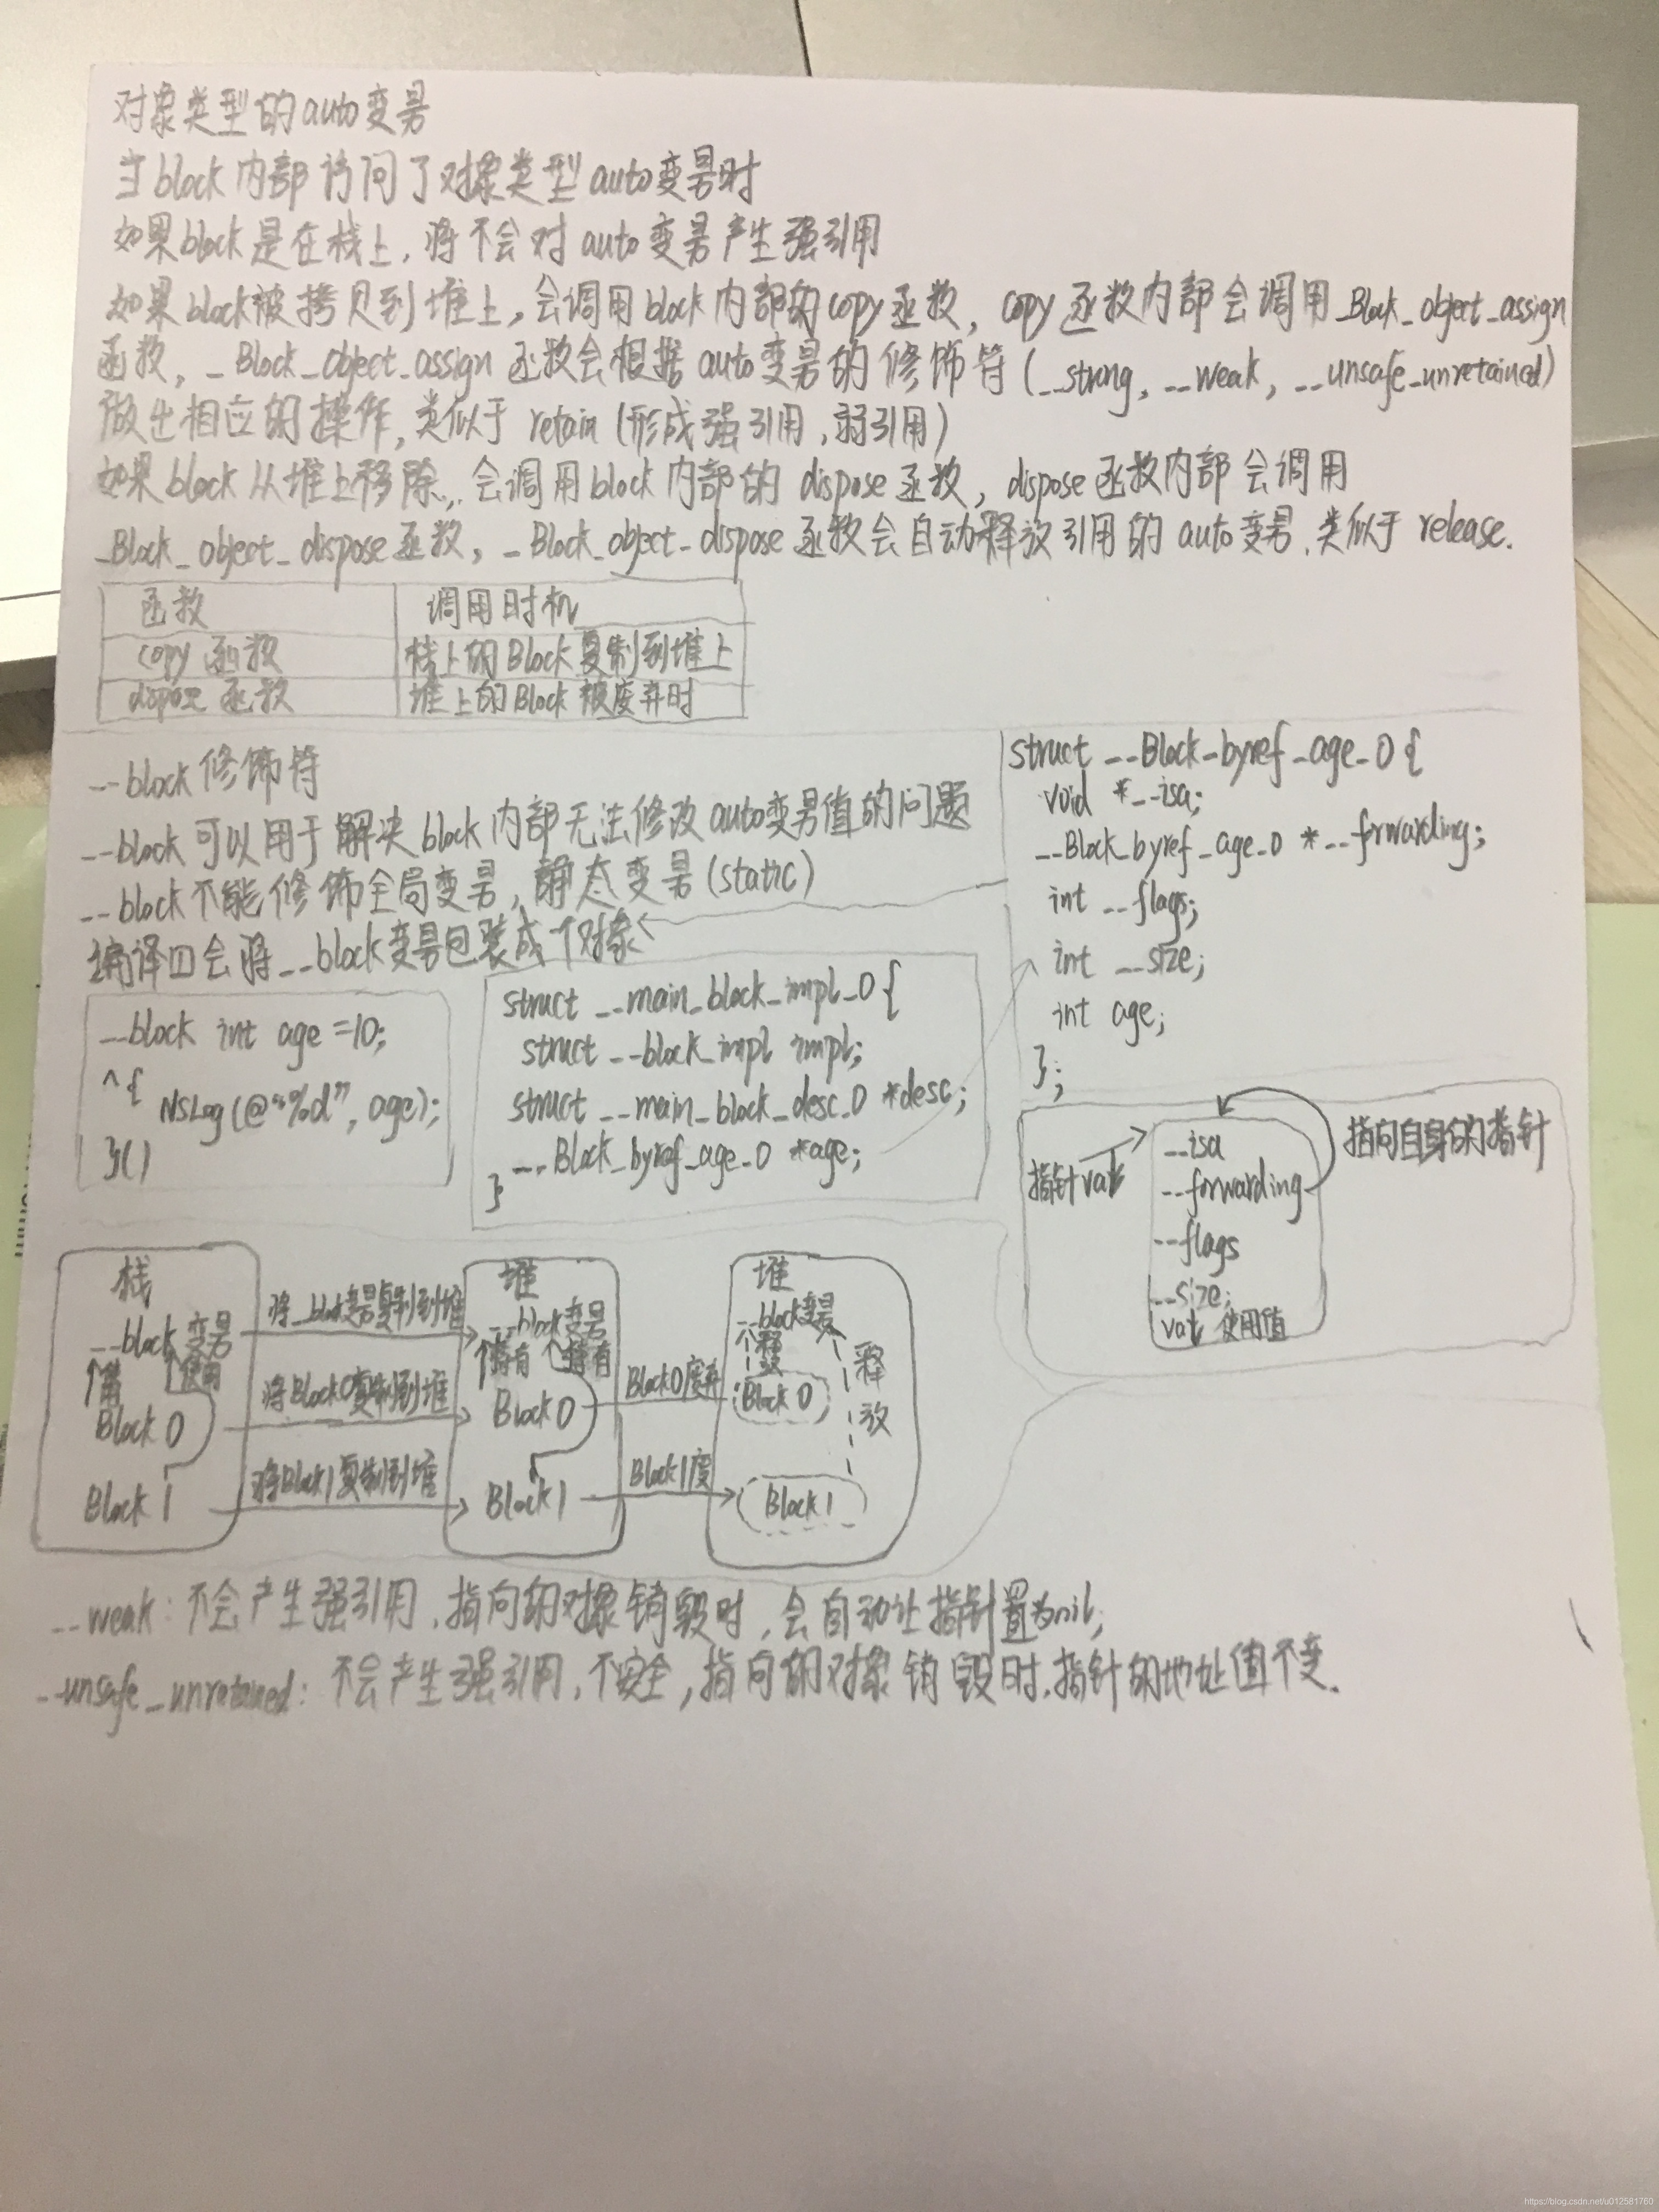 对象类型的auto变量
当block内部访问了对象类型auto变量时
如果block是在栈上,将不会对auto变量产生强引用
如果block被拷贝到堆上,会调用block内部的copy函数,copy函数内部会调用_Block_object_assign
函数,_Block_object_assign函数会根据auto变量的修饰符(__strong,__weak,__unsafe_unretained)
做出相应的操作,类似于retain(形成强引用,弱引用)
如果block从堆上移除,会调用block内部的dispose函数,dispose函数内部会调用
_Block_object_dispose函数,_Block_object_dispose函数会自动释放引用的auto变量.类似于release.
函数 调用时机
copy函数 栈上的Block复制到堆上
dispose函数 堆上的Block被废弃时
__block修饰符
__block可以用于解决block内部无法修改auto变量值的问题
__block不能修饰全局变量,静态变量(static)
编译四会将__block变量包装成一个对象
__block int age =10;
^{
NSLog(@"%d", age);
}()
struct __main_block_impl_0{
struct __block_impl impl;
struct __main_block_desc_0 *desc;
__Block_byref_age_0 *age;
}
struct __Block_byref_age_0{
void *__isa;
__Block_byref_age_0 *__forwarding;
int __flags;
int __size;
int age;
};
指针val
__isa
__forwarding
__flags
__size;
val 使用值
指向自身的指针
栈
__block变量
使用
Block0
Block1
将__block变量复制到堆
将Block0复制到堆
将Block1复制到堆
堆
__block变量
持有 持有
Block0
Block1
Block0废弃
Block1废
堆
__block变量
释放
Block0
释放
Block1
__weak:不会产生强引用,指向的对象销毁时,会自动让指针置为nil;
__unsafe_unretained:不会产生强引用,不安全,指向的对象销毁时,指针的地址值不变.
https://blog.csdn.net/u012581760